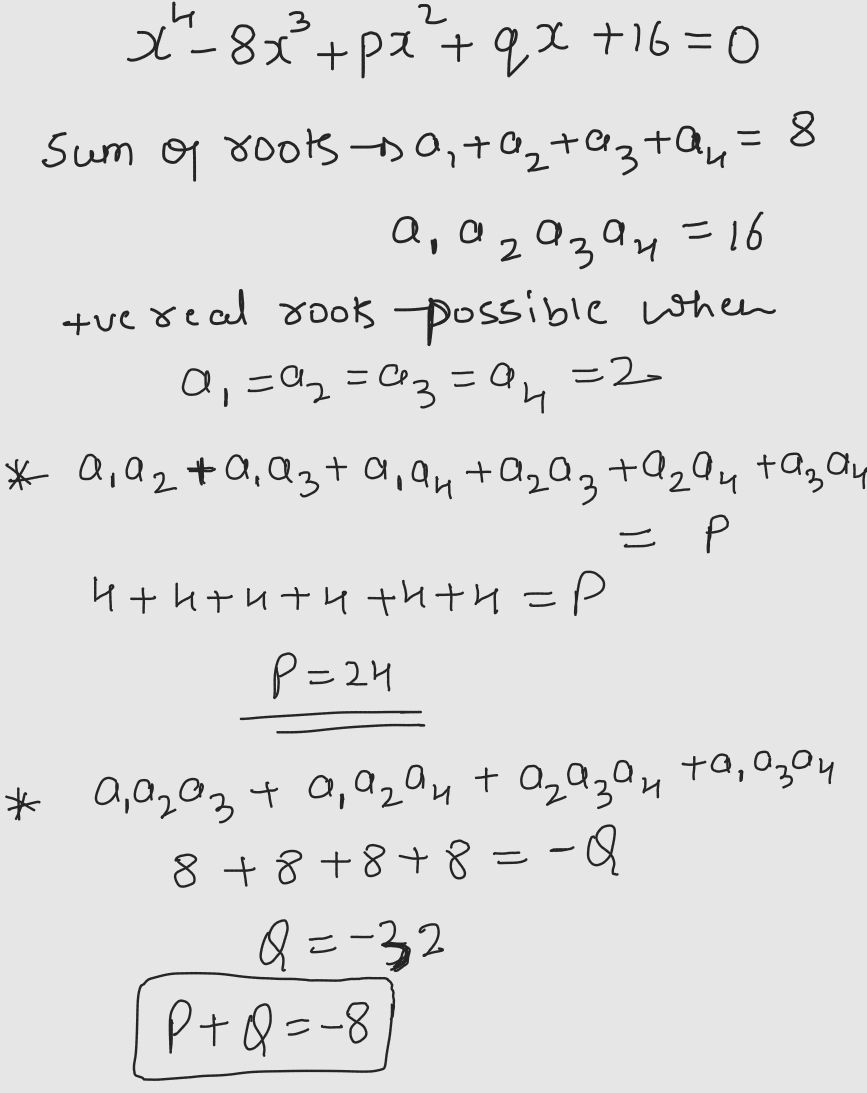 x⁴ - 8x³ + px² + qx + 16 = 0
Sum of roots → a₁ + a₂ + a₃ + a₄ = 8
a₁ a₂ a₃ a₄ = 16
+ve real roots possible when
a₁ = a₂ = a₃ = a₄ = 2
* a₁a₂ + a₁a₃ + a₁a₄ + a₂a₃ + a₂a₄ + a₃a₄
= P
4 + 4 + 4 + 4 + 4 + 4 = P
P = 24
* a₁a₂a₃ + a₁a₂a₄ + a₂a₃a₄ + a₁a₃a₄
8 + 8 + 8 + 8 = -Q
Q = -32
P + Q = -8